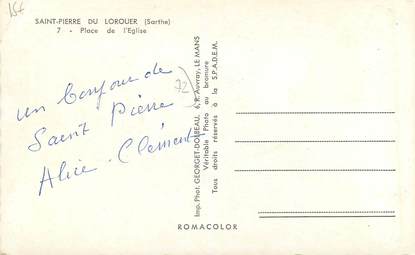 15f
SAINT-PIERRE DU LOROUER (Sarthe)
7 - Place de l'Eglise
un bonjour de
Saint Pierre
Alice Clément
72
Imp. Phot. GEORGET-DOUBEAU, 6, R. Auvray, LE MANS
Véritable Photo au bromure
Tous droits réservés à la S.P.A.D.E.M.
ROMACOLOR